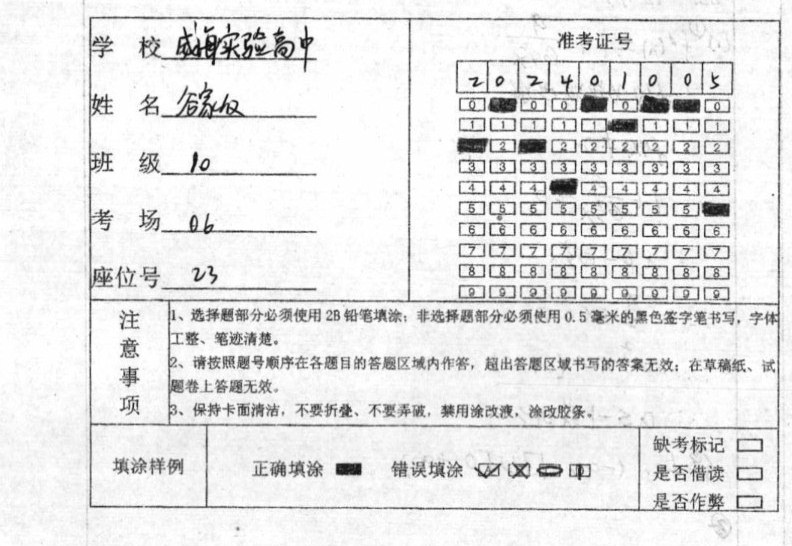 学 校 威海实验高中
姓 名
班 级 10
考 场 06
座位号 23
准考证号
2 0 2 4 0 1 0 0 5
0 0 0 0 0
1 1 1 1 1 1 1 1
2 2 2 2 2 2 2
3 3 3 3 3 3 3 3 3
4 4 4 4 4 4 4 4
5 5 5 5 5 5 5 5
6 6 6 6 6 6 6 6 6
7 7 7 7 7 7 7 7 7
8 8 8 8 8 8 8 8 8
9 9 9 9 9 9 9 9 9
注意事项
1、选择题部分必须使用2B铅笔填涂；非选择题部分必须使用0.5毫米的黑色签字笔书写，字体
工整、笔迹清楚。
2、请按照题号顺序在各题目的答题区域内作答，超出答题区域书写的答案无效；在草稿纸、试
题卷上答题无效。
3、保持卡面清洁，不要折叠、不要弄破，禁用涂改液、涂改胶条。
填涂样例 正确填涂 错误填涂
缺考标记
是否借读
是否作弊